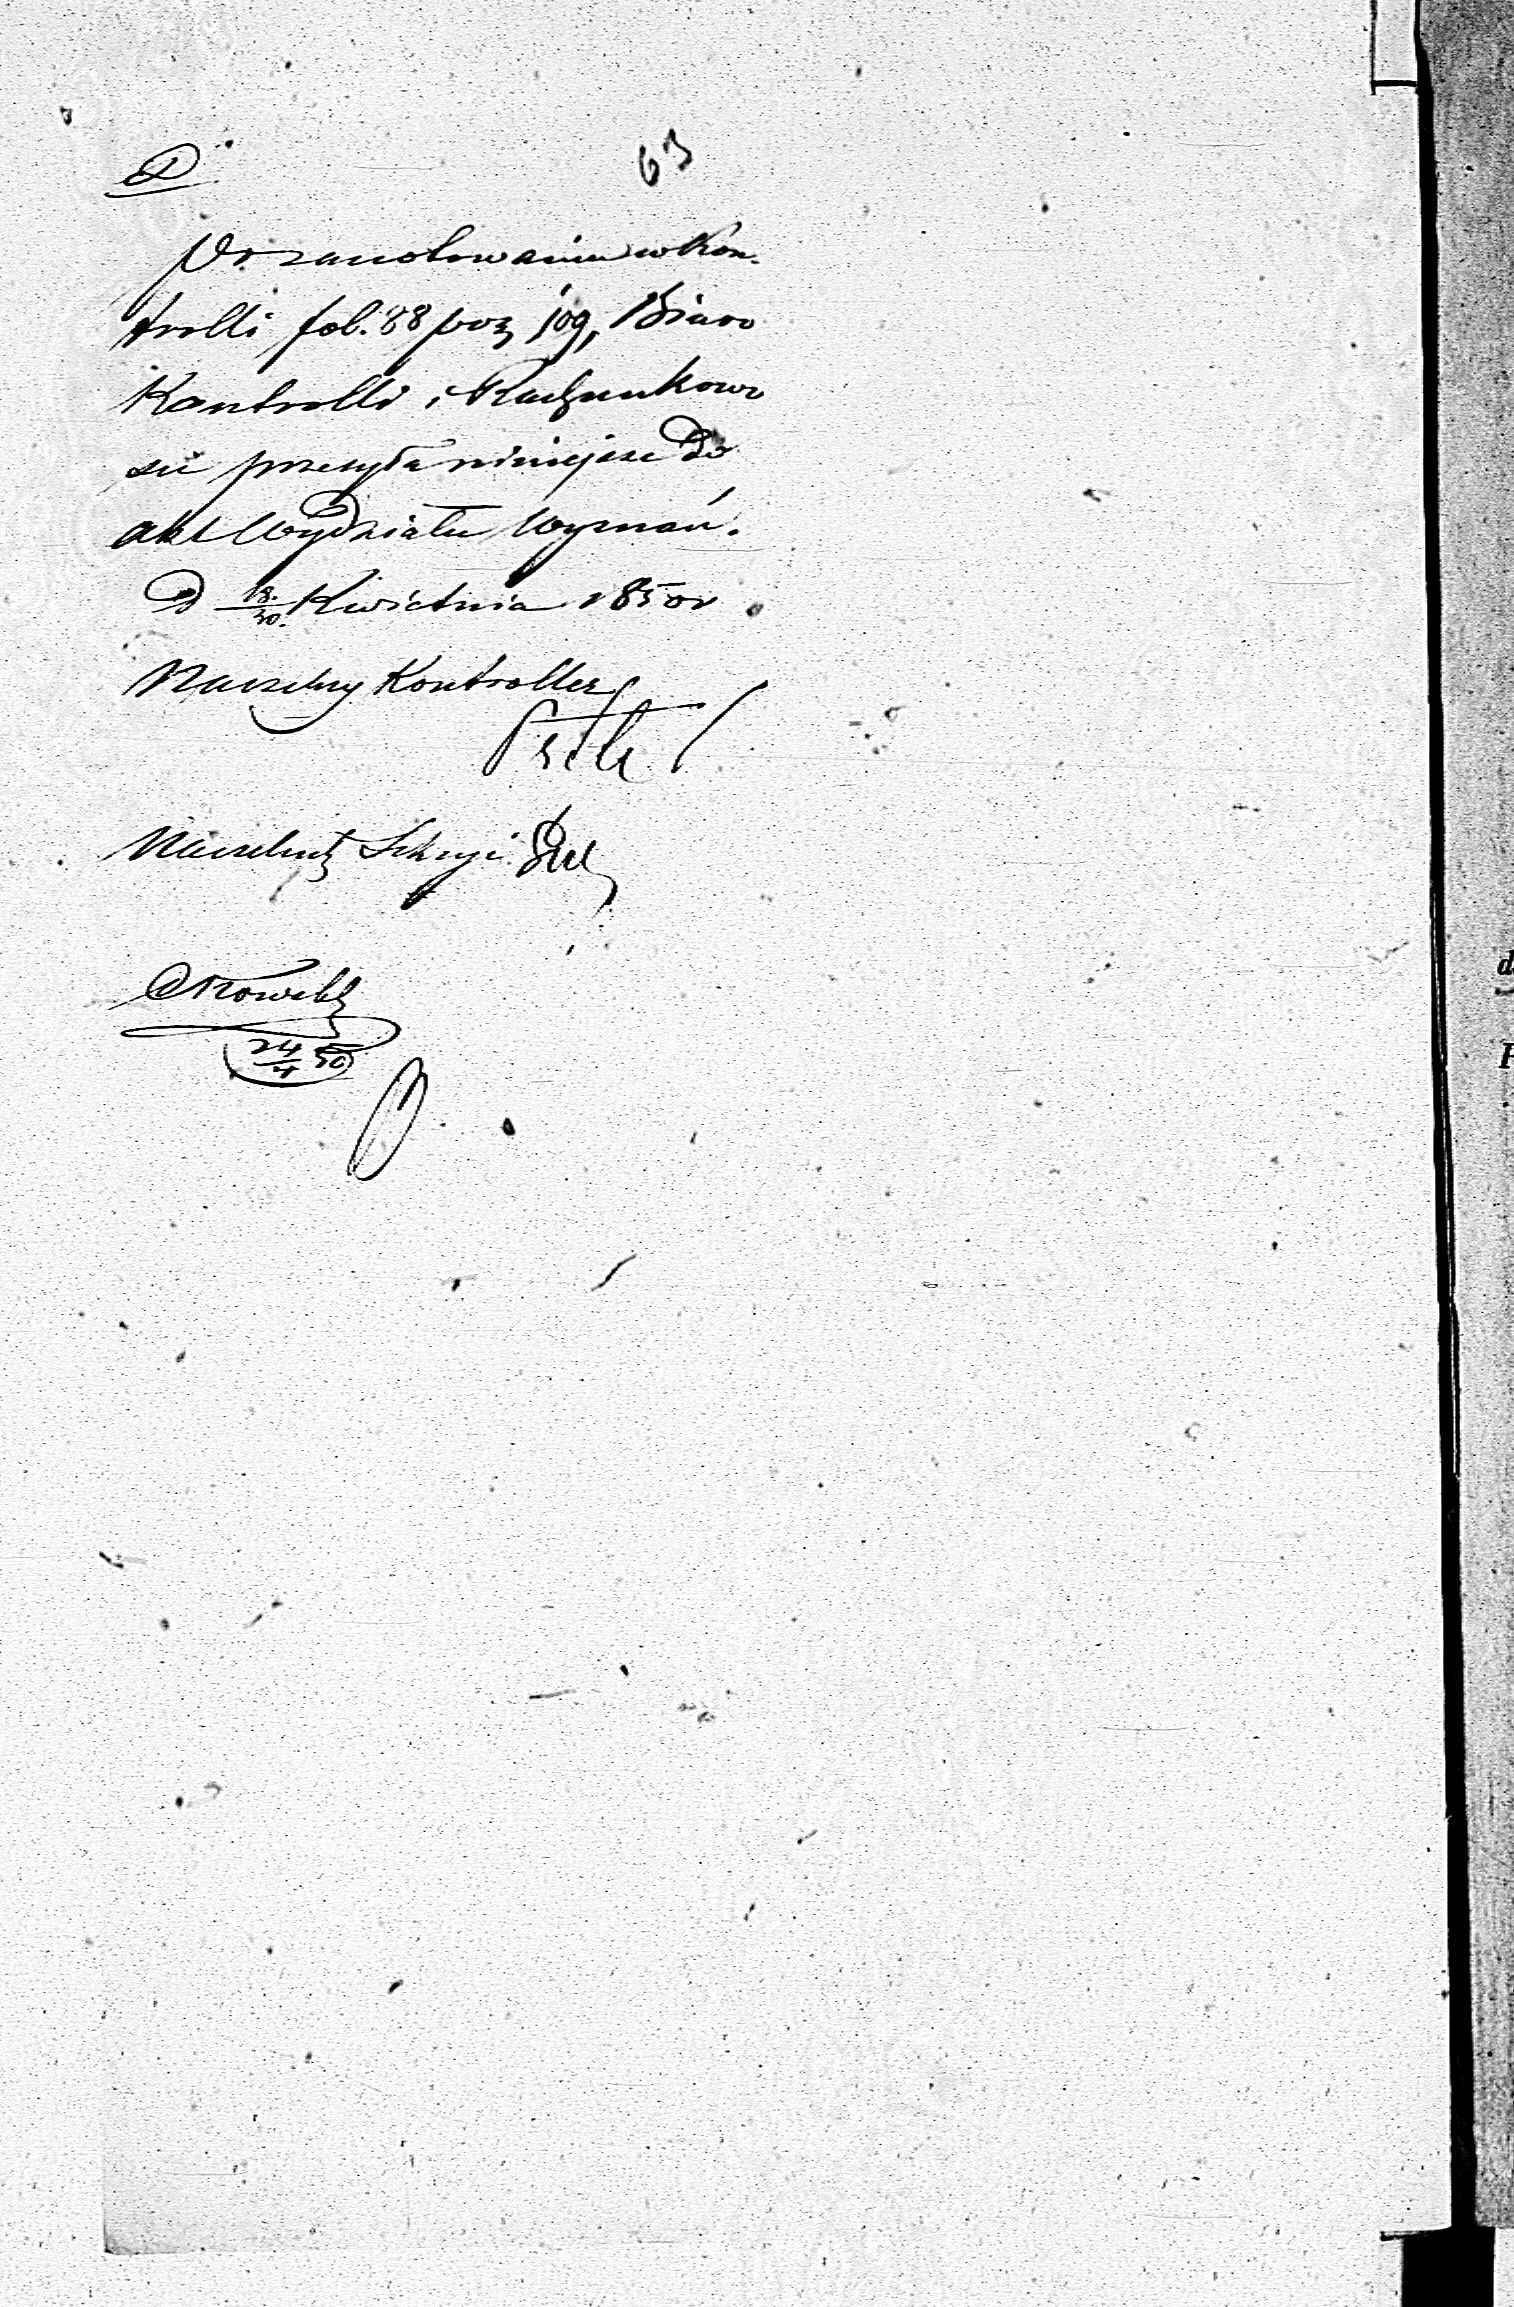 63
Po zanotowaniu w Kon-
trolli fol. 88 poz 109, Biuro
Kontrolli i Rachunkowo
sci przesyła niniejsze do
akt Wydziału Wyznań.
d 18/30 Kwietnia 1850 r
Naczelny Kontroller
Naczelnik Sekcyi
24/4 50